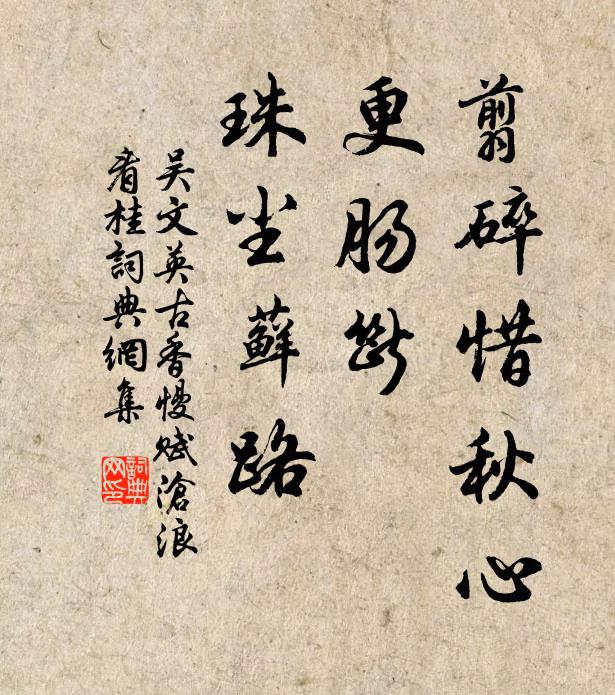 翦碎惜秋心
更腸斷
珠尘蘚路
吴文英古香慢赋滄浪
看桂詞典網集
詞典
网印